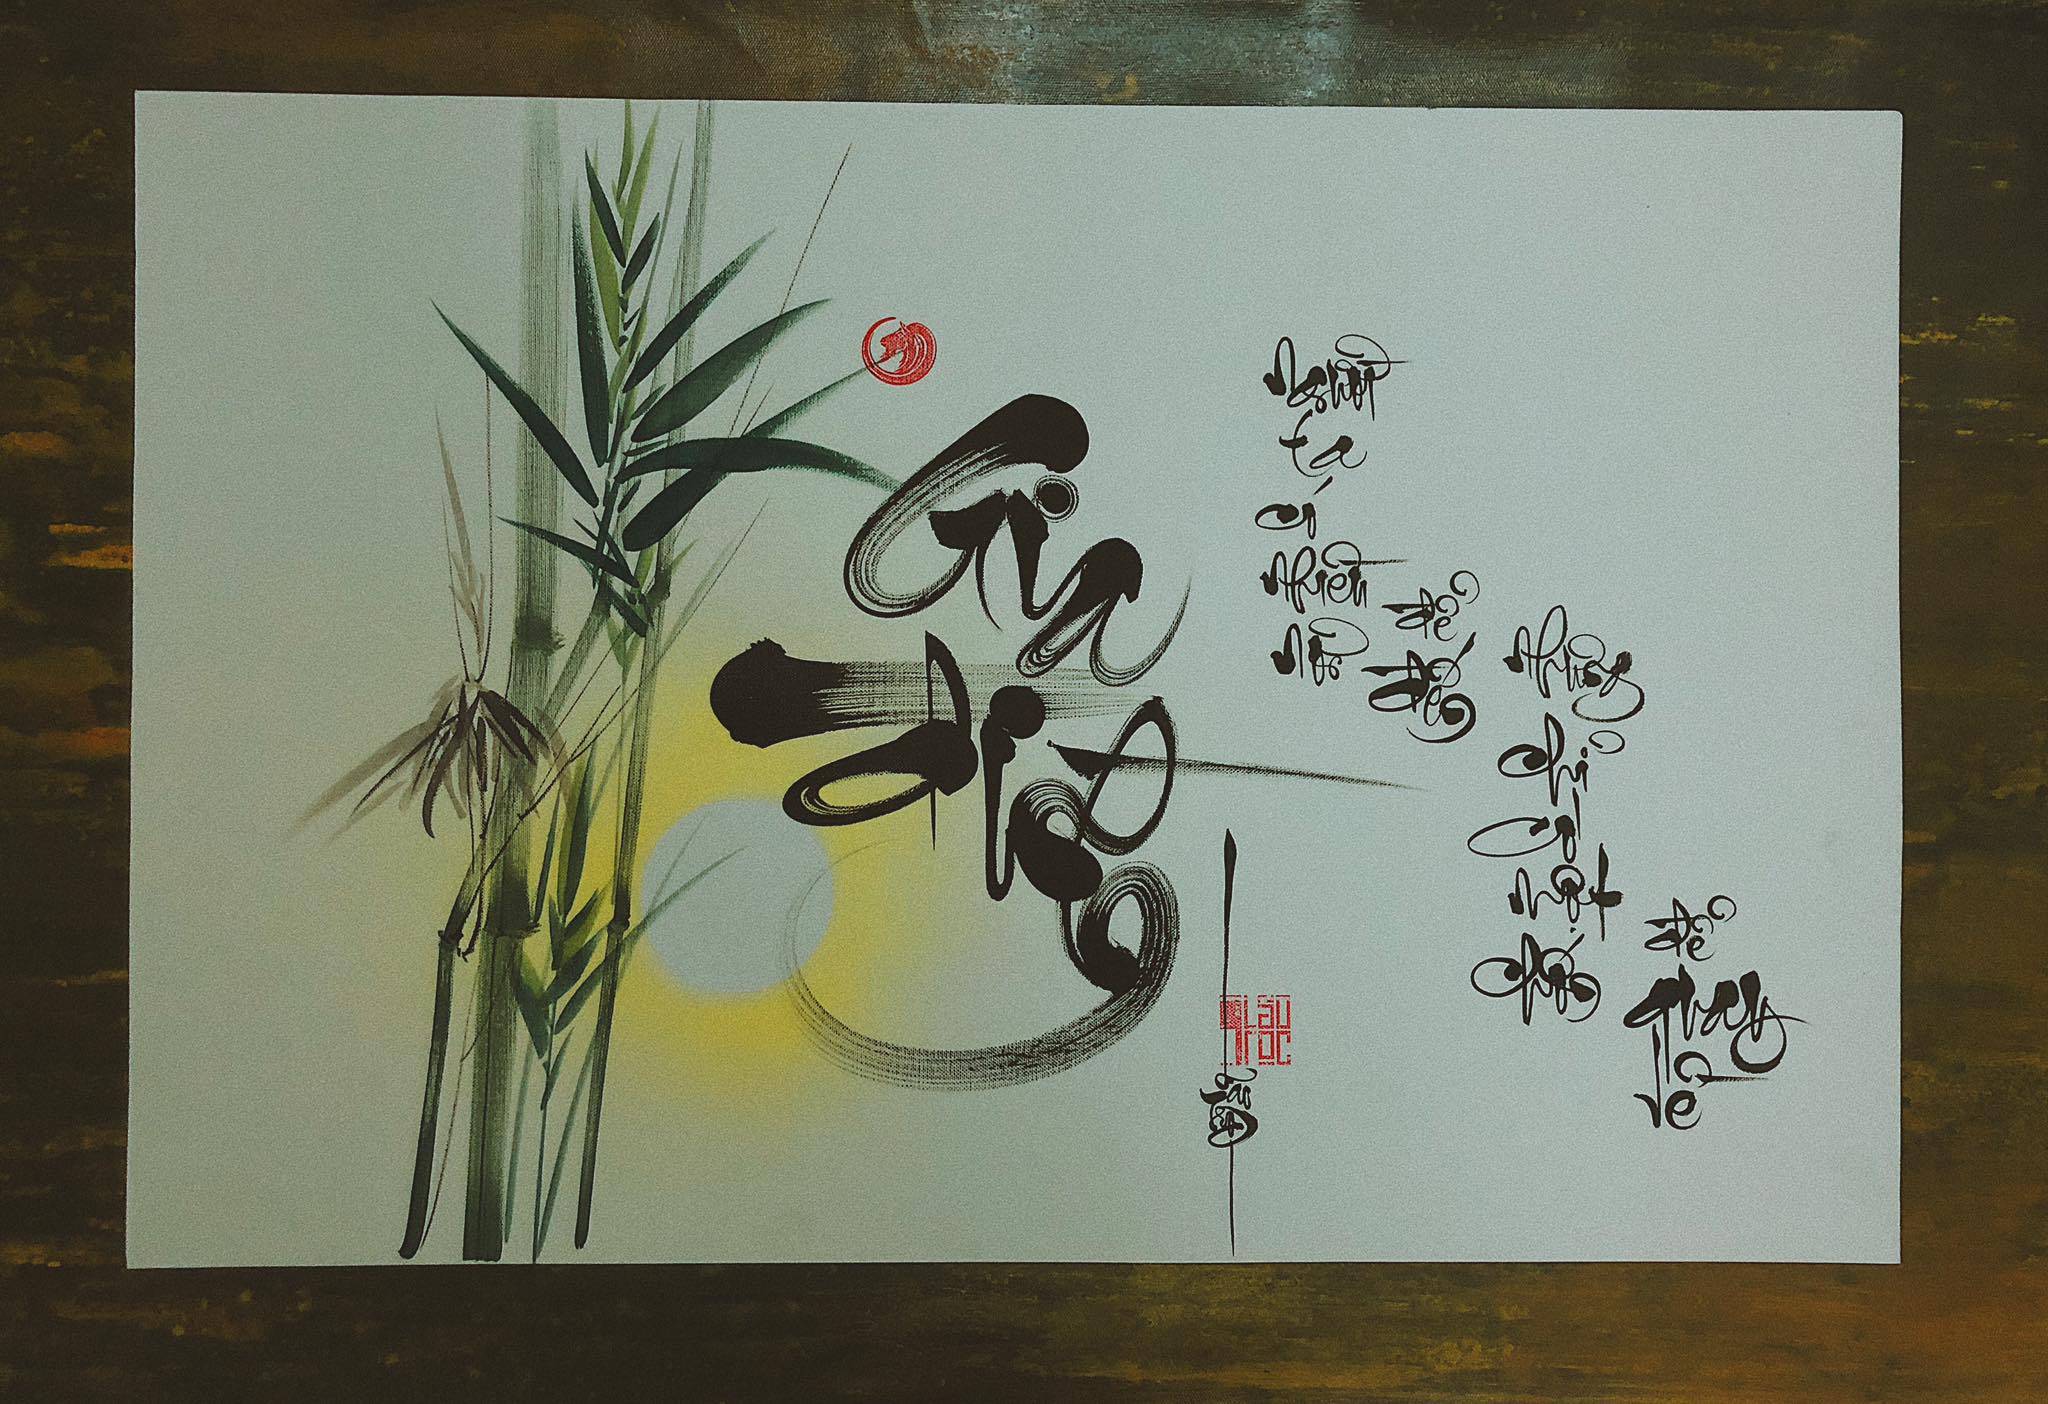 Gia
đình
Người ta có nhiều nơi
để đến
Nhưng chỉ có một chốn
để quay về